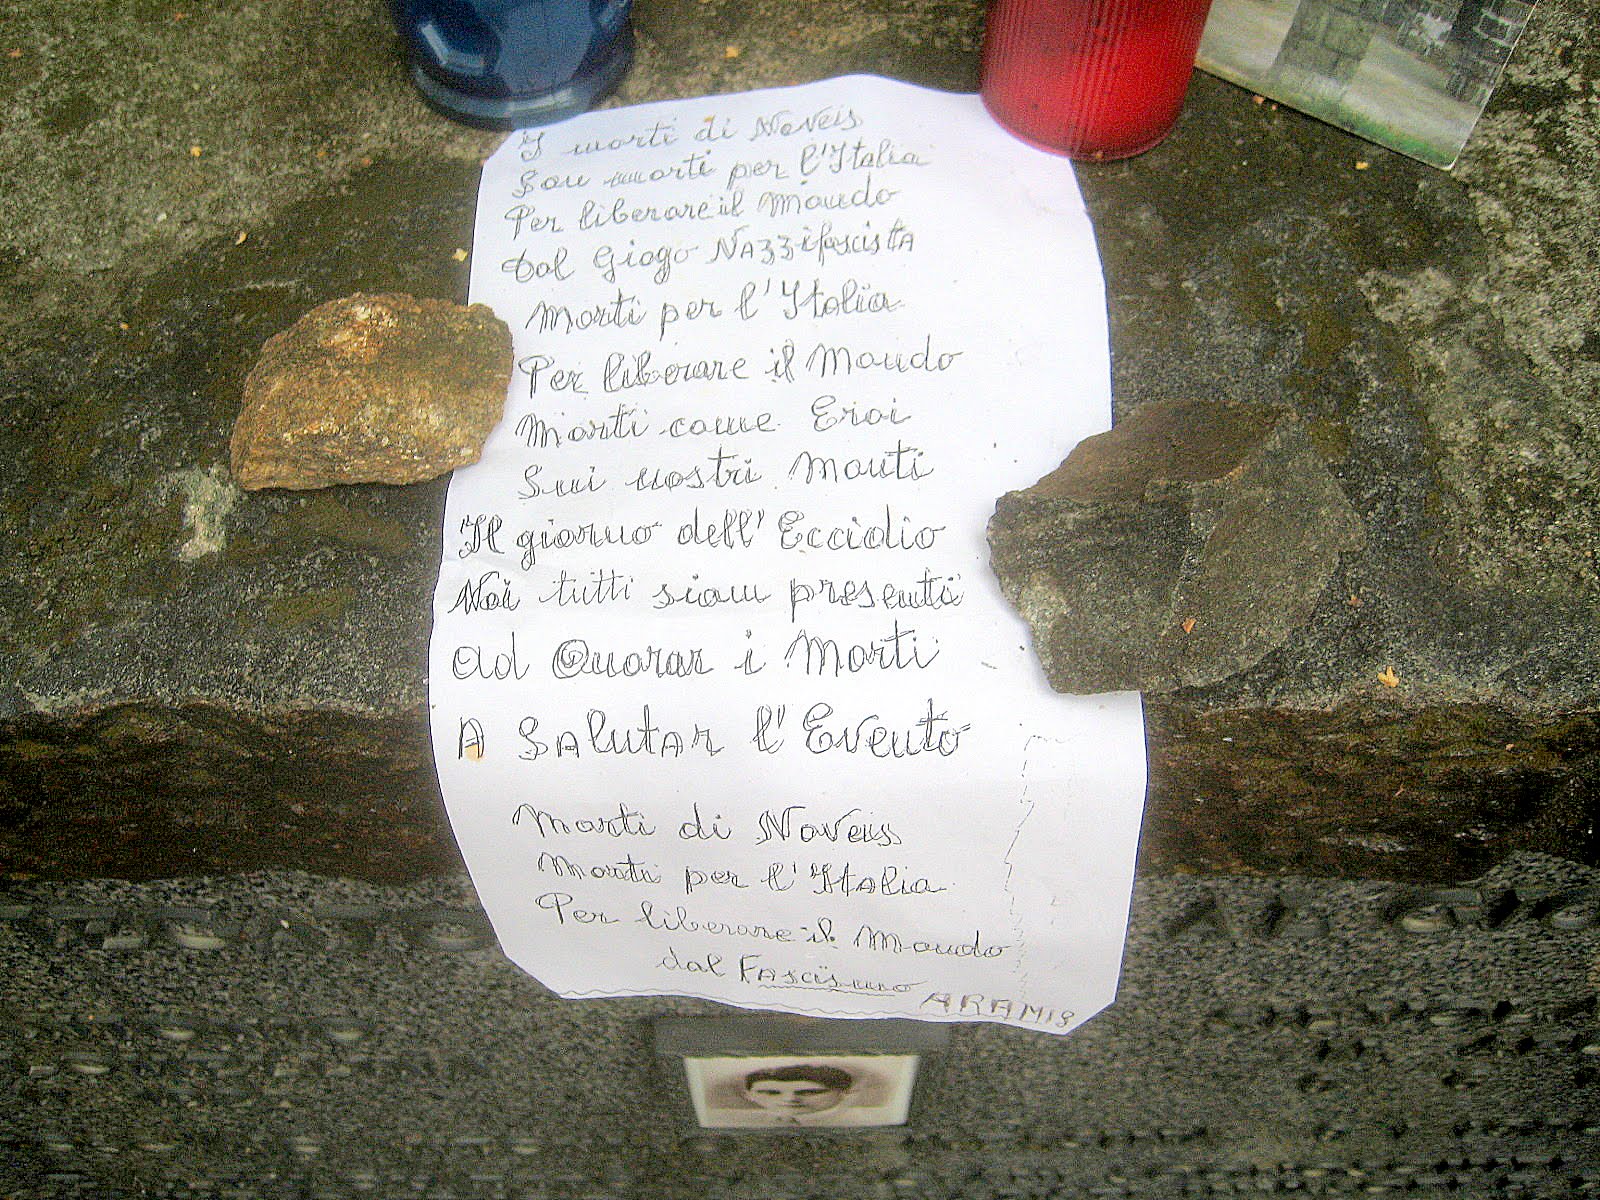 I morti di Noveis
Son morti per l'Italia
Per liberare il Mondo
Dal Giogo NAzzifascistA
Morti per l'Italia
Per liberare il Mondo
Morti come Eroi
Sui nostri Monti
Il giorno dell'Eccidio
Noi tutti siam presenti
Ad Onorar i Morti
A SAlutAr l'Evento
Morti di Noveis
Morti per l'ItAlia
Per liberare il Mondo
dal FAscismo
ARAMIS